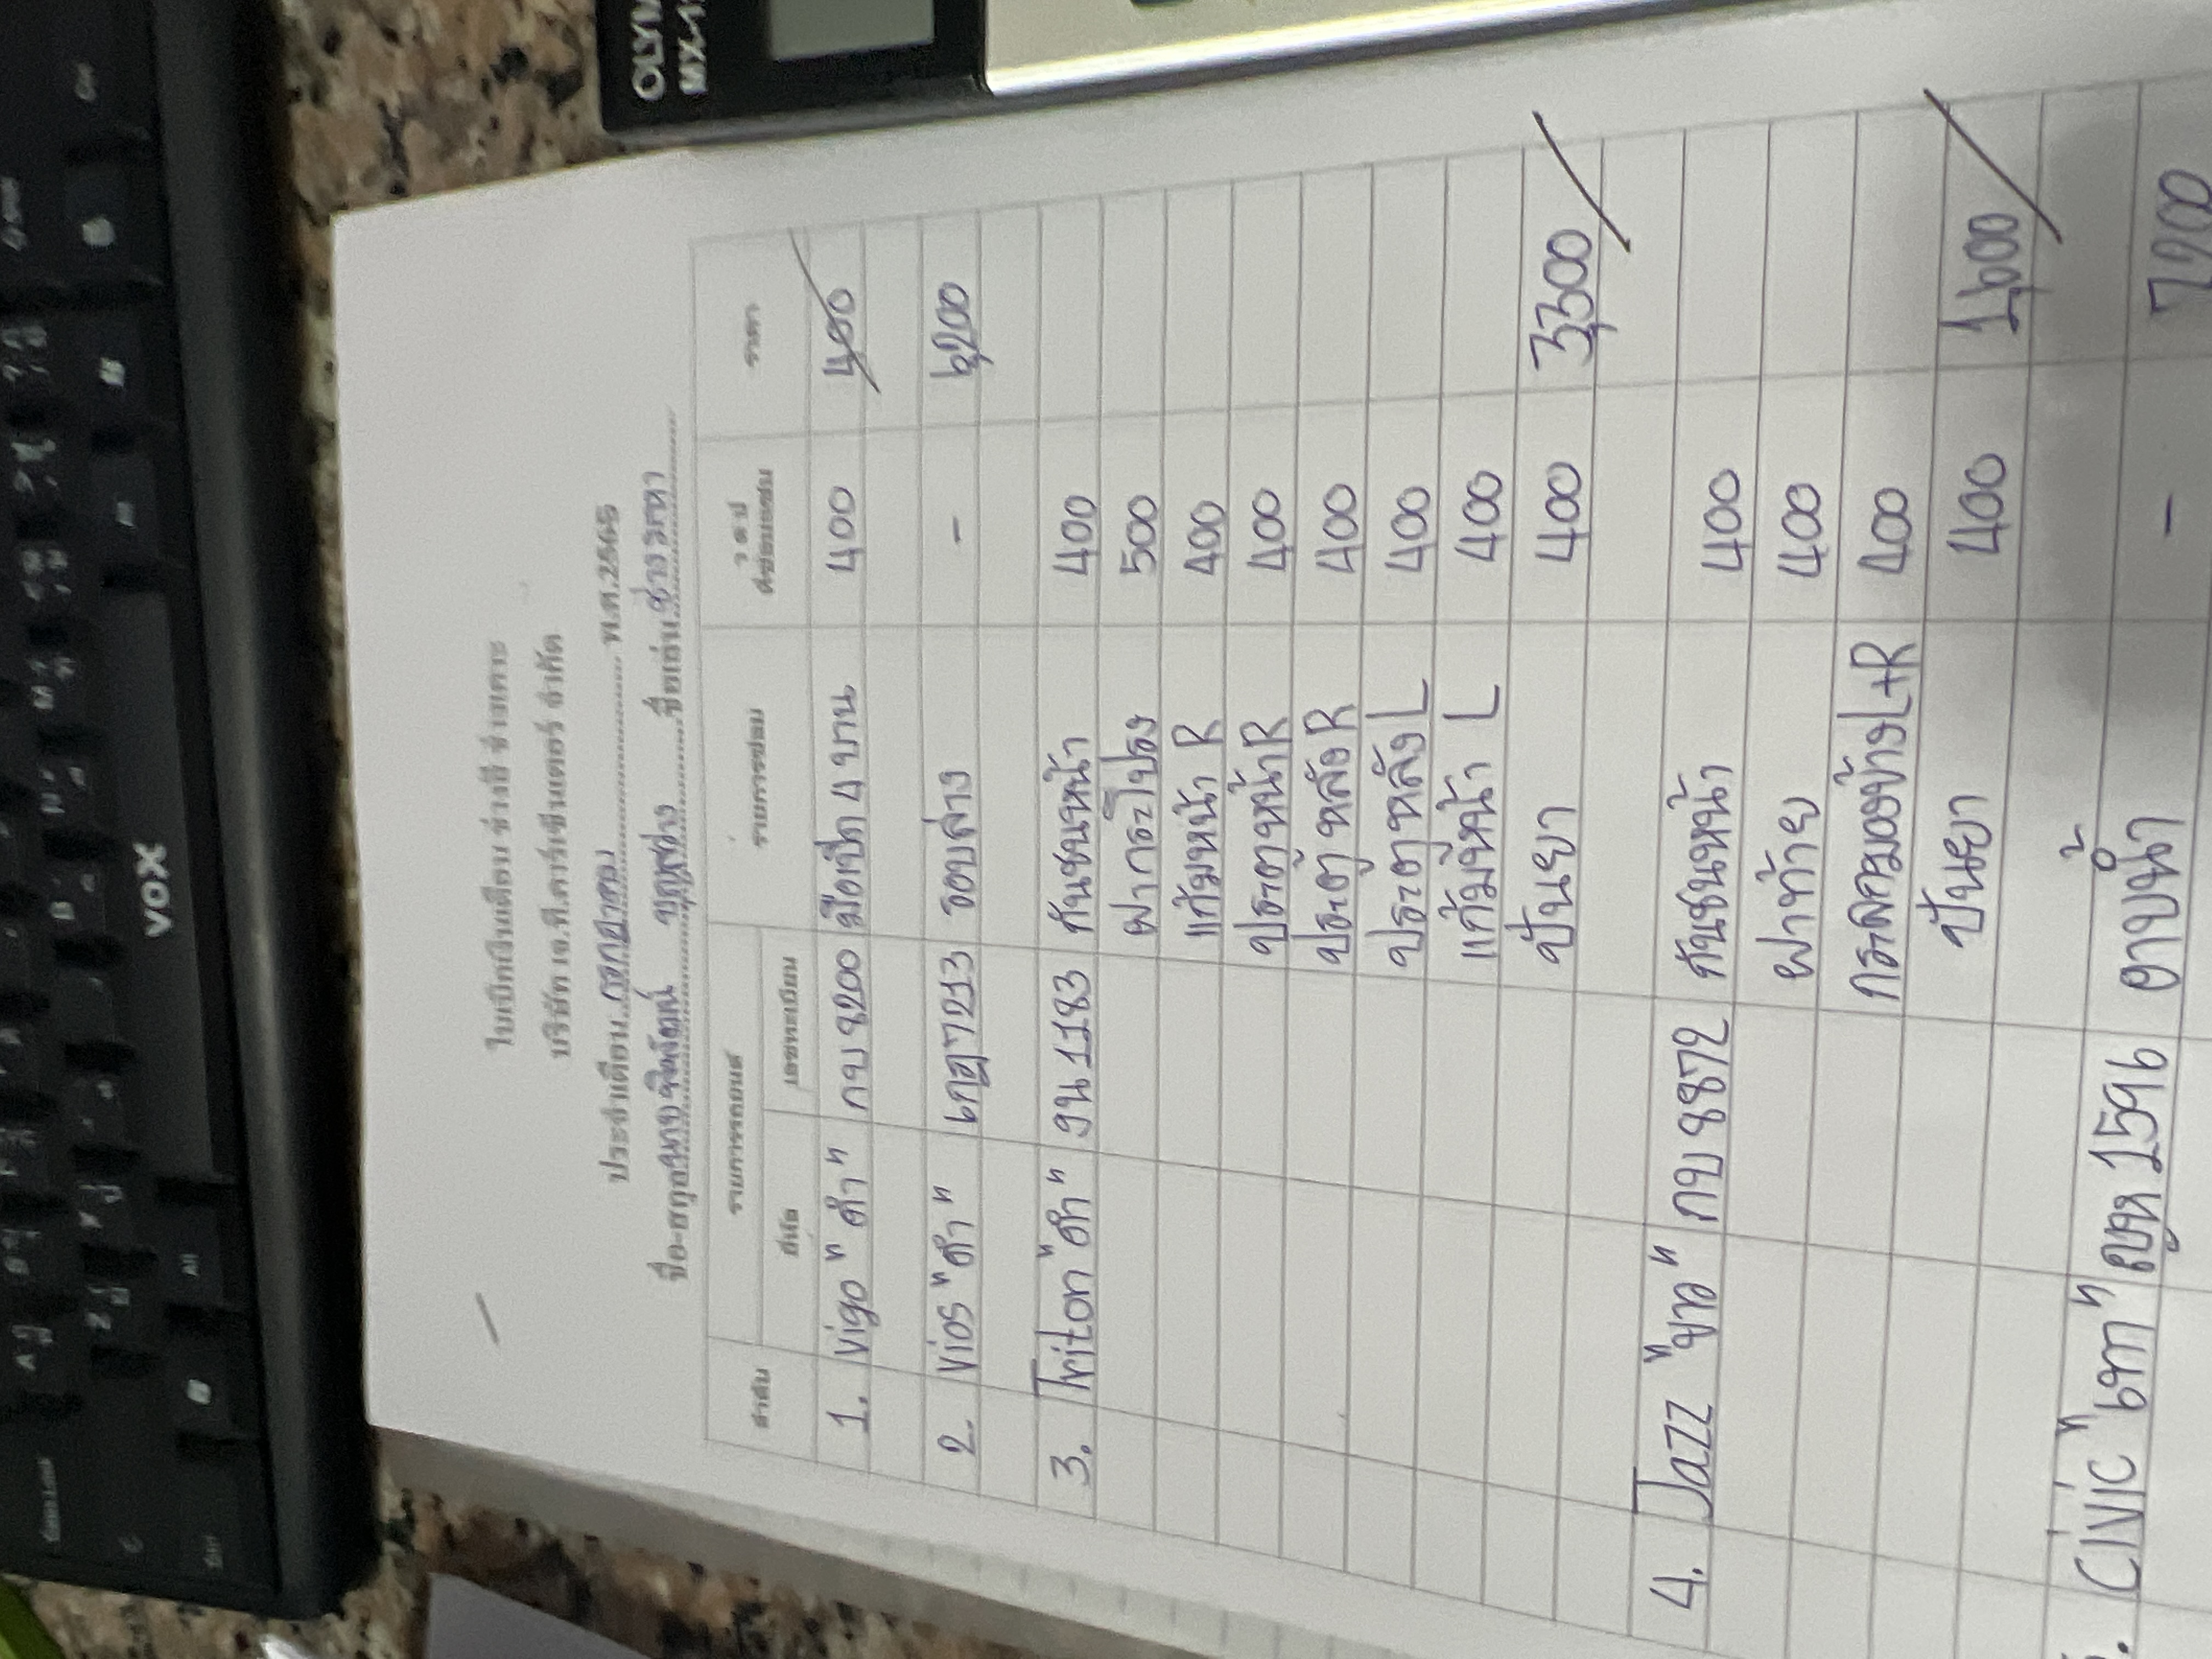 ใบเบิกเงินเดือน ช่างสี ช่างเคาะ
บริษัท เจ.พี.คาร์เซ็นเตอร์ จำกัด
ประจำเดือน กรกฎาคม พ.ศ.2565
ชื่อ-สกุล นาย ชื่อเล่น ช่าง
ลำดับ รายการรถยนต์ รายการซ่อม ว ด ป ราคา
ยี่ห้อ เลขทะเบียน
1. Vigo "ดำ" กบ 8200 มือเปิด 4 บาน 400 400
2. Vios "ดำ" 7213 รอบล่าง - 6,200
3. Triton "ดำ" งน 1183 กันชนหน้า 400
ฝากระโปรง 500
แก้มหน้า R 400
ประตูหน้า R 400
ประตูหลัง R 400
ประตูหลัง L 400
แก้มหน้า L 400
ปั่นยา 400 3,300
4. Jazz "ขาว" กบ 8872 กันชนหน้า 400
ฝาท้าย 400
กระจกมองข้าง L+R 400
ปั่นยา 400 1,600
CIVIC "เทา" 1596 อาบน้ำ - 7,200
VOX
OLYM
MX-1